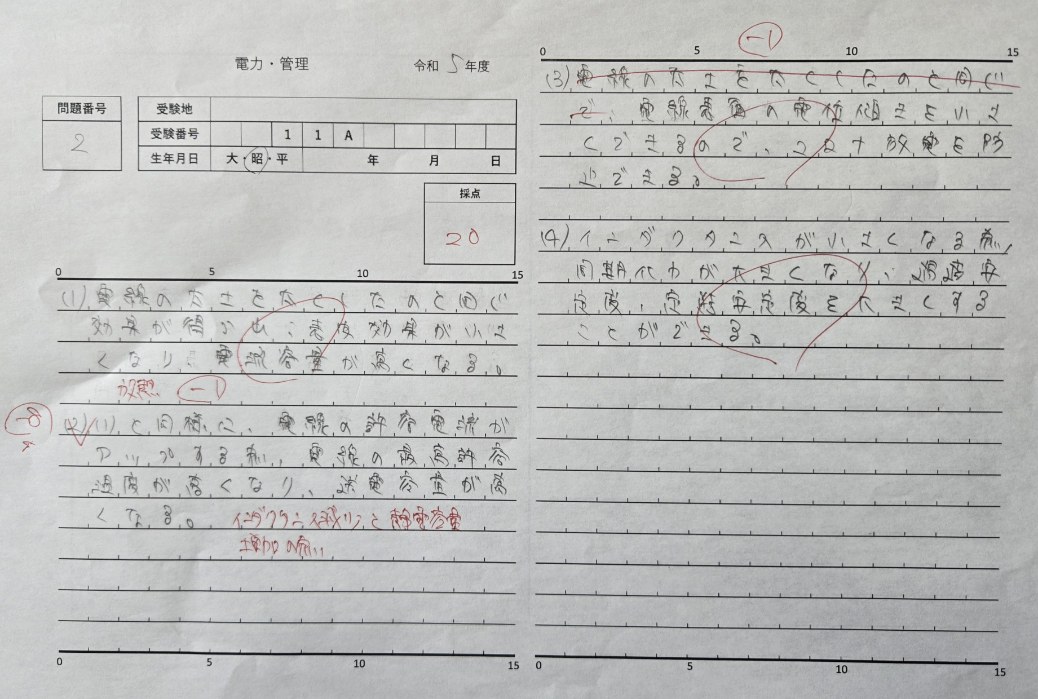 電力・管理
令和 5年度
問題番号
2
受験地
受験番号
1 1 A
生年月日
大・昭・平
年 月 日
採点
20
0 5 10 15
(1) 電線の太さを太くしたのと同じ
効果が得られ、表皮効果が小さ
くなり、電流容量が高くなる。
放熱 -1
-8
(2)(1)と同様に、電線の許容電流が
アップする為、電線の最高許容
温度が高くなり、送電容量が高
くなる。
インダクタンス減少と静電容量
増加の為
0 5 10 15
-1
0 5 10 15
(3) 電線の太さを太くしたのと同じ
で、電線表面の電位傾きを小さ
くできるので、コロナ放電を防
止できる。
(4) インダクタンスが小さくなる為、
同期化力が大きくなり、過渡安
定度、定態安定度を大きくする
ことができる。
0 5 10 15